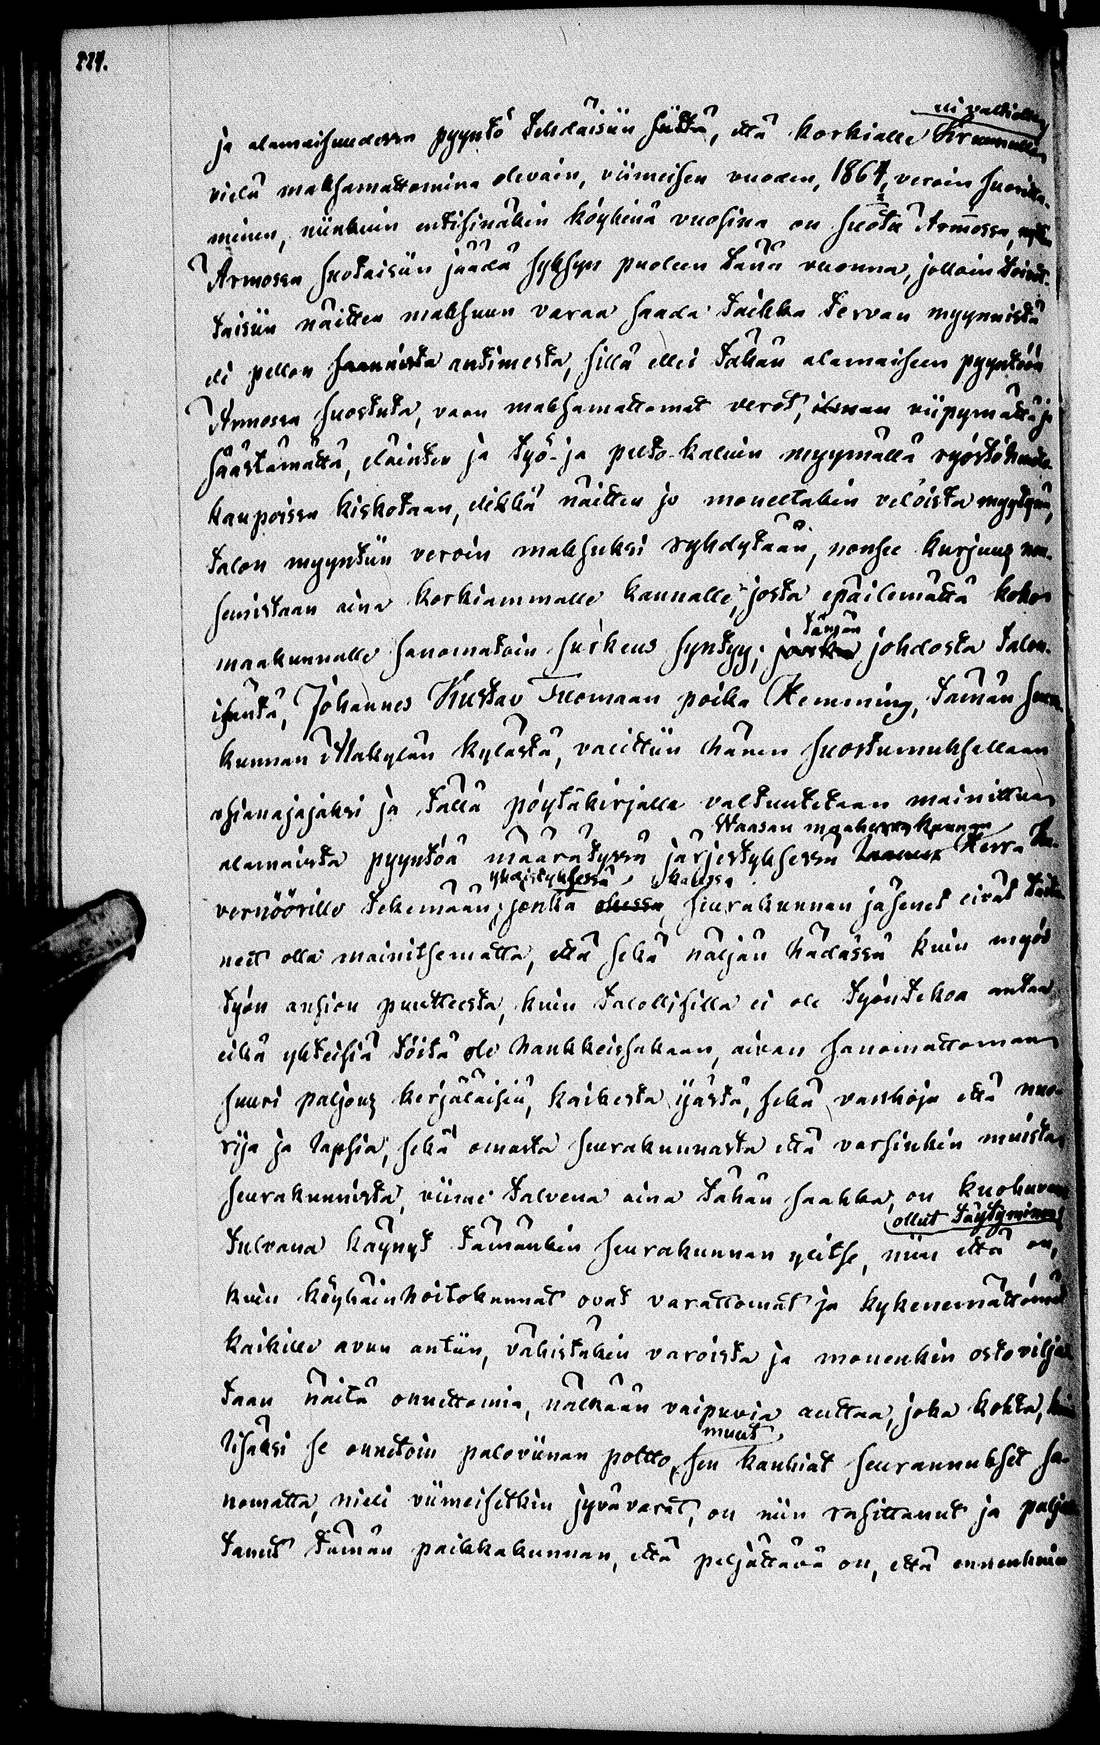 114.
eli valtiolle
ja alamaisuudessa pyyntö tehdäisiin siittä, että korkialle Kruunulle
vielä maksamattomina olevain, viimeisen vuoden, 1864, veroin suoritta-
minen, niinkuin entisinäkin köyhinä vuosina on suotu Armossa,
Armossa suotaisiin jäädä syksyn puoleen tänä vuonna, jolloin toivot-
taisiin näitten maksuun varaa saada taikka tervan myynnistä
eli pellon saannista antimesta, sillä ellei tähän alamaiseen pyyntöön
Armossa suostuta, vaan maksamattomat verot, ilman viipymättä ja
säästämättä, eläinten ja työ- ja pelto-kaluin myymällä ryöstö huuto-
kaupoissa kiskotaan, elikkä näitten jo moneltakin velöista myytyä,
talon myyntiin veroin maksuksi ryhdytään, nousee kurjuus nou-
semistaan aina korkiammalle kannalle, josta epäilemättä koko
maakunnalle sanomatoin surkeus syntyy; jonka johdosta talon-
tämän
isäntä, Johannes Kustav Tuomaan poika Hemming, tämän seura-
kunnan Alakylän kylästä, valittiin hänen suostumuksellaan
asianajajaksi ja tällä pöytäkirjalla valtuutetaan mainittua
Waasan maaherrakunnan
alamaista pyyntöä määrätyssä järjestyksessä Herra Ku-
yhdistyksessä
vernöörille tekemään; jonka ohessa seurakunnan jäsenet eivät taita-
neet olla mainitsematta, että sekä näljän hädässä kuin myös
työn ansion puutteesta, kuin talollisilla ei ole työntekoa antaa
eikä yhteisiä töitä ole hankkeissakaan, aivan sanomattoman
suuri paljous kerjäläisiä, kaikesta ijästä, sekä vanhoja että nuo-
rija ja lapsia, sekä omasta seurakunnasta että varsinkin muista
seurakunnista, viime talvena aina tähän saakka, on kuohuvana
ollut täytyminen
tulvana käynyt tämänkin seurakunnan ylitse, niin että on,
kuin köyhäinhoitokunnat ovat varattomat ja kykenemättömät
kaikille avun antiin, vähistäkin varoista ja monenkin ostoviljas-
taan näitä onnettomia, nälkään vaipuvia auttaa, joka kohta, kuin
muut
lisäksi se onnetoin paloviinan poltto, sen kauhiat seurannukset sa-
nomatta, nieli viimeisetkin jyvävarat, on niin rasittanut ja paljas-
tanut tämän paikkakunnan, että peljättävä on, että ennenkuin